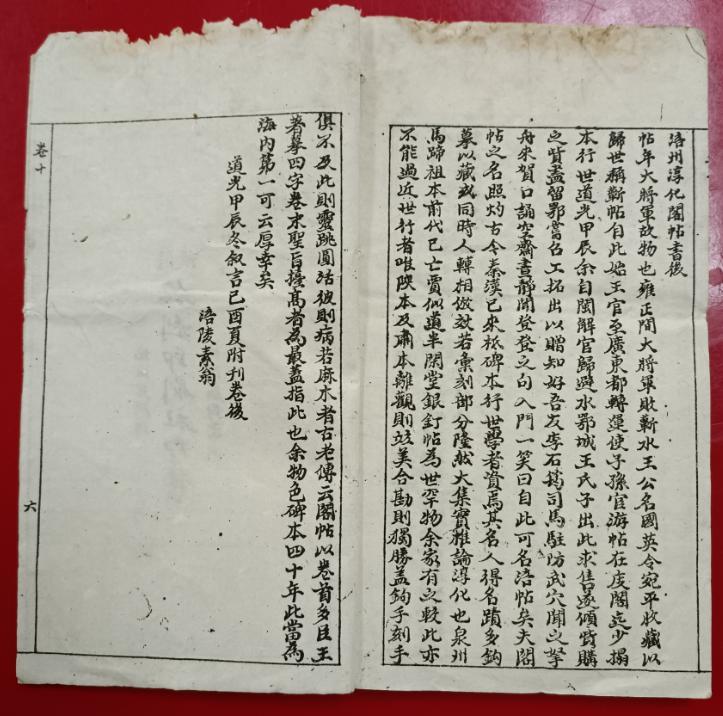 涪州淳化閣帖書後
帖年大將軍故物也雍正閒大將軍敗蘄水王公名國英令宛平收藏以
歸世稱蘄帖自此始王官至廣東都轉運使子孫官游帖在庋閣迄少搨
本行世道光甲辰余自閩解官歸避水鄂城王氏子出此求售遂傾貲購
之貲盡留鄂當名工拓出以贈知好吾友李石鄰司馬駐防武穴聞之拏
舟來賀口誦空齋晝靜聞登登之句入門一笑曰自此可名涪帖矣夫閣
帖之名照灼古今秦漢已來祇碑本行世學者資焉其名人得名蹟多鈎
摹以藏或同時人轉相倣效若彙刻部分陸然大集實權論淳化也泉州
馬蹄祖本前代已亡賈似道半閒堂銀釘帖為世罕物余家有之較此亦
不能過近世行者唯陝本及肅本離觀則竝美合勘則獨勝蓋鈎手刻手
俱不及此則靈跳圓活彼則病若麻木者古老傳云閣帖以卷首多臣王
著摹四字卷末聖旨擡高者為最蓋指此也余物色碑本四十年此當為
海內第一可云厚幸矣
道光甲辰冬叙言己酉夏附刊卷後
涪陵素翁
卷十
六